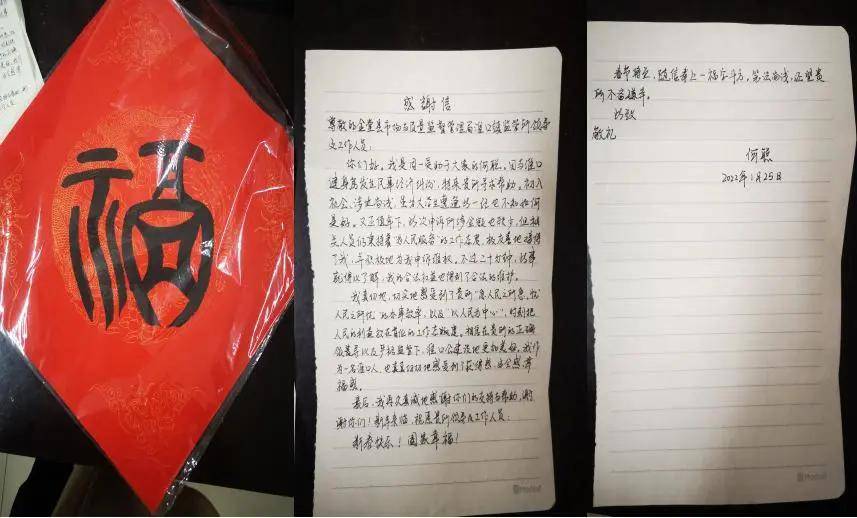 福
感謝信
尊敬的金堂县市场与质量监督管理局淮口镇监管所领导
及工作人员：
你们好。我是周一受助于大家的何聪。因与淮口
健身房发生民事经济纠纷，特来贵所寻求帮助。初入
社会，涉世尚浅，
好。又正值年下，此次申诉所涉金额也较少，但相
关人员仍秉持着“为人民服务”的工作态度，极友善地接待
了我，并积极地为我申诉维权。不过二十分钟，此事
就得以了解，我的合法权益也得到了合法的维护。
我真切地，切实地感受到了贵所“急人民之所急，忧
人民之所忧”的办事效率，以及“以人民为中心”，时刻把
人民的利益放在首位的工作态度。相信在贵所的正确
领导以及严格监管下，淮口会建设地更加美好。我作
为一名淮口人，也真真切切地感受到了获得感，安全感，幸
福感。
最后，我再次真诚地感谢你们的支持与帮助，谢
谢你们！新年来临，祝愿贵所领导及工作人员：
新春快乐！阖家幸福！
春节将至，随信奉上一福字斗方，笔法尚浅，还望贵
所不吝嫌弃。
此致
敬礼
何聪
2022年1月25日